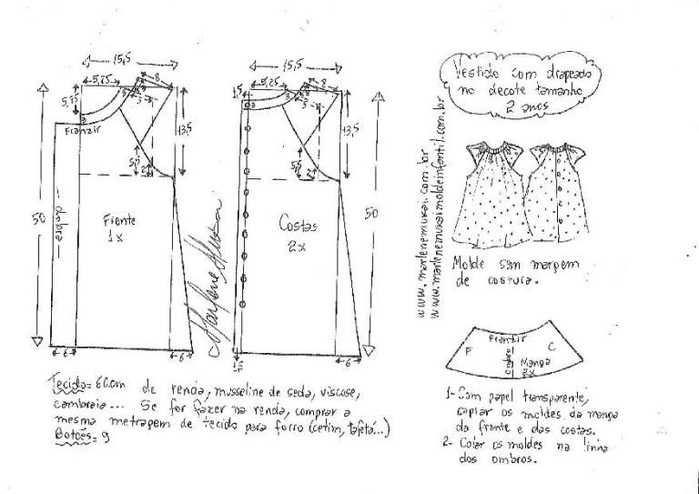 15,5
5,25
8
3
5,75
Franzir
13,5
5,5
2
50
dobra
Frente
1x
6
6
Marlene Mukai
15,5
1,5
5,25
8
3
13,5
5,5
2
50
Costas
2x
1,5
6
Vestido com drapeado
no decote tamanho
2 anos
www.marlenemukai.com.br
www.marlenemukaimoldeinfantil.com.br
Molde sem margem
de costura.
Franzir
F
C
ombro
Manga
2x
1- Com papel transparente,
copiar os moldes da manga
da frente e das costas.
2- Colar os moldes na linha
dos ombros.
Tecido= 60cm de renda, musseline de seda, viscose,
cambraia... Se for fazer na renda, comprar a
mesma metragem de tecido para forro (cetim, tafetá...)
Botões= 9